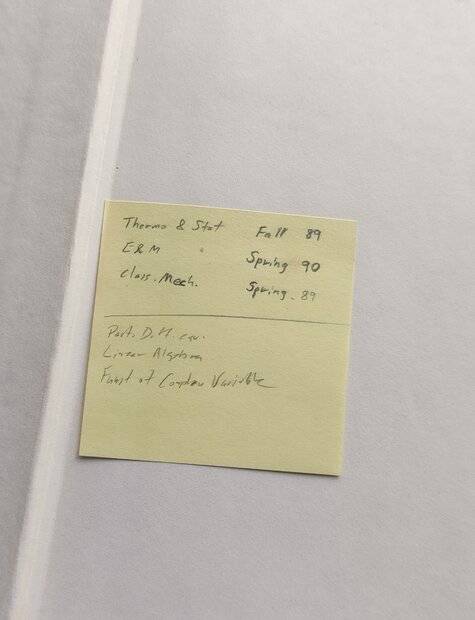 Thermo & Stat Fall 89
E&M Spring 90
Class. Mech. Spring. 89
Part. D. eqv.
Linear Algebra
Funct of Complex Variable